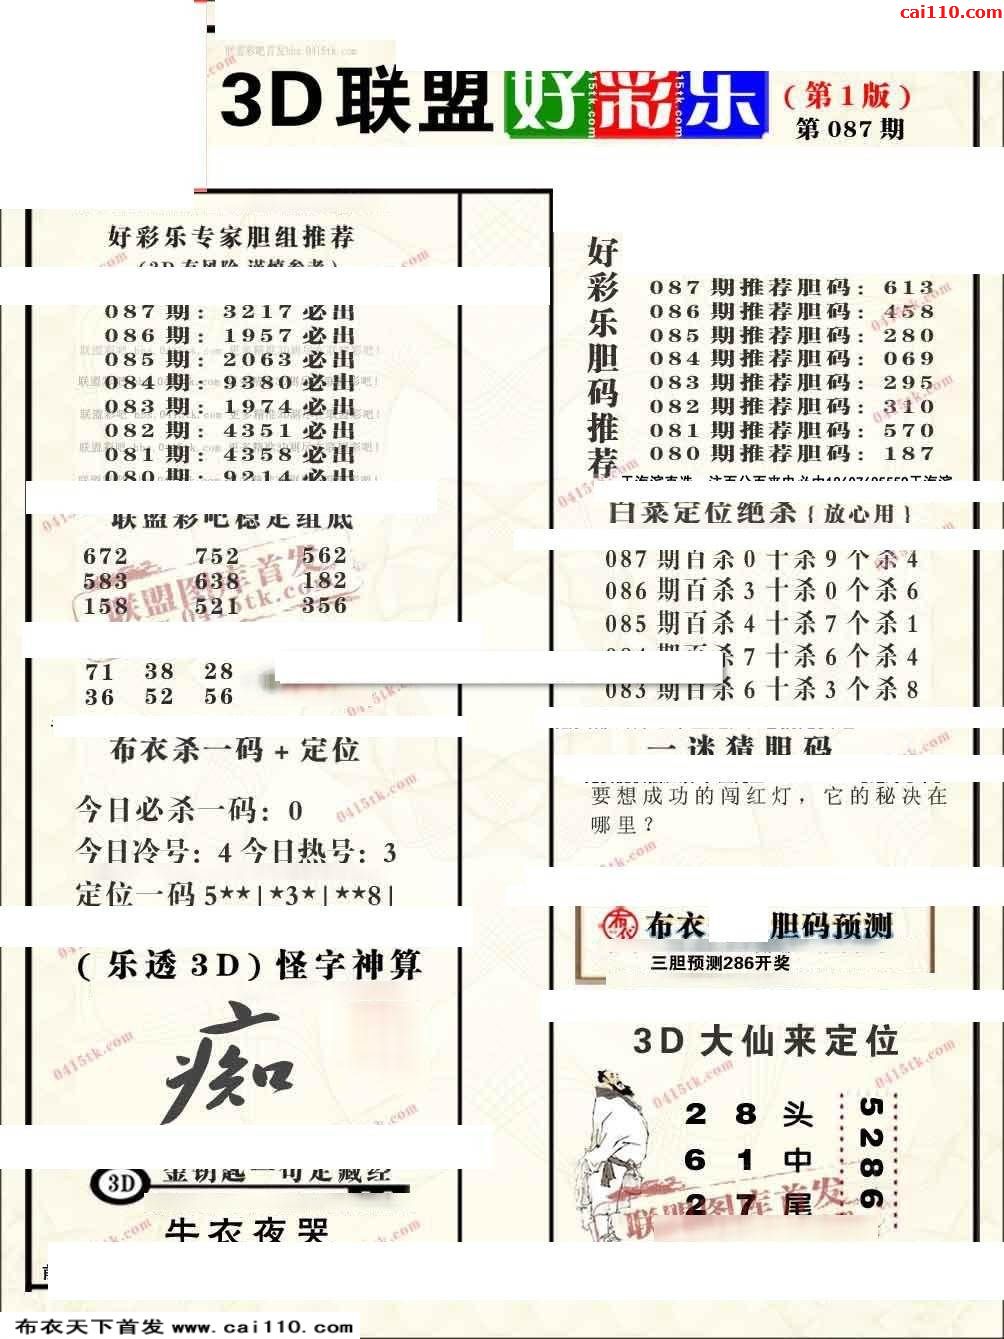 cai110.com
3D联盟好彩乐
(第1版)
第087期
好彩乐专家胆组推荐
087期: 3217必出
086期: 1957必出
085期: 2063必出
084期: 9380必出
083期: 1974必出
082期: 4351必出
081期: 4358必出
080期: 9214必出
联盟彩吧稳定组底
672 752 562
583 638 182
158 521 356
71 38 28
36 52 56
布衣杀一码+定位
今日必杀一码: 0
今日冷号: 4 今日热号: 3
定位一码 5**|*3*|**8|
(乐透3D)怪字神算
痴
3D
金钥匙一句定藏经
牛衣夜哭
好彩乐胆码推荐
087期推荐胆码: 613
086期推荐胆码: 458
085期推荐胆码: 280
084期推荐胆码: 069
083期推荐胆码: 295
082期推荐胆码: 310
081期推荐胆码: 570
080期推荐胆码: 187
白菜定位绝杀{放心用}
087期百杀0十杀9个杀4
086期百杀3十杀0个杀6
085期百杀4十杀7个杀1
杀7十杀6个杀4
083期百杀6十杀3个杀8
一迷猜胆码
要想成功的闯红灯，它的秘决在
哪里？
布衣 胆码预测
三胆预测286开奖
3D大仙来定位
2 8 头
6 1 中
2 7 尾
5286
联盟图库首发
0415tk.com
布衣天下首发 www.cai110.com